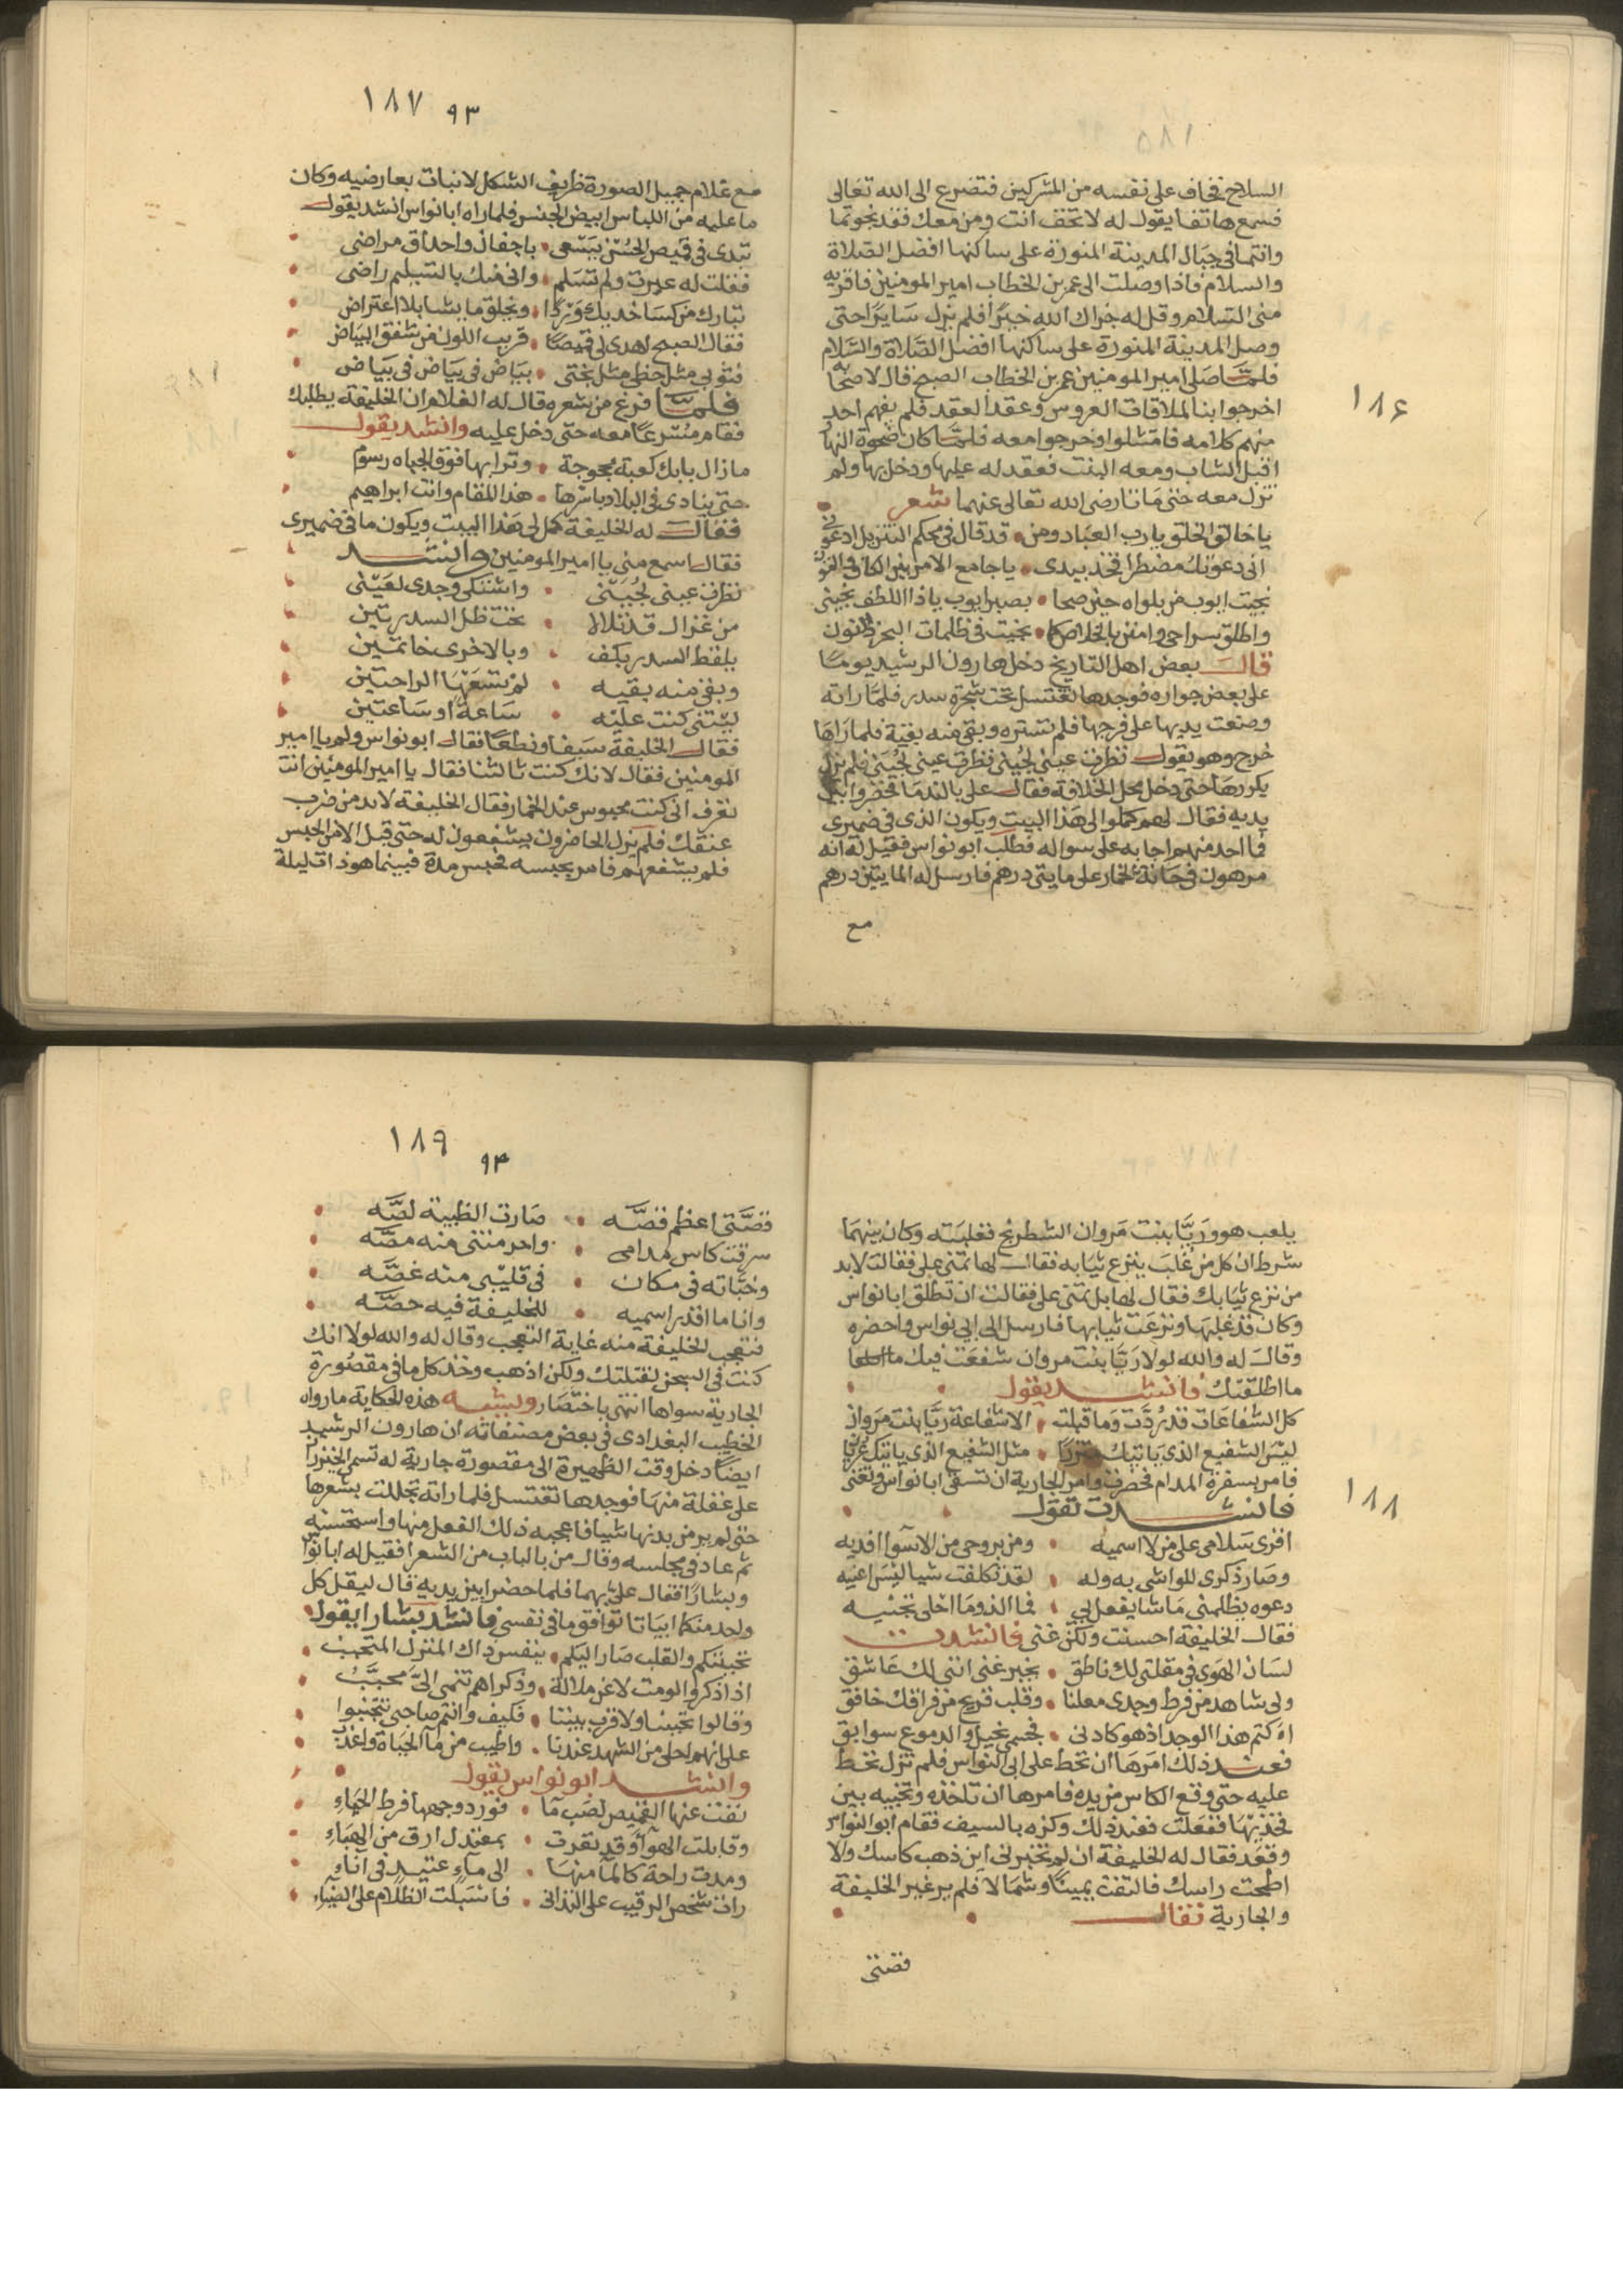 ١٨٦
السلاح فخاف على نفسه من المشركين فتضرع الى الله تعالى
فسمع هاتفا يقول له لا تخف انت ومن معك فقد نجوتما
وانتما في جبال المدينة المنورة على ساكنها افضل الصلاة
والسلام فاذا وصلت الى عمر بن الخطاب امير المومنين فاقريه
منى السلام وقل له جزاك الله خيرًا فلم يزل سايرًا حتى
وصل المدينة المنورة على ساكنها افضل الصلاة والسلام
فلمّا صلى امير المومنين عمر بن الخطاب الصبح قال لاصحابه
اخرجوا بنا لملاقات العروس وعقد العقد فلم يفهم احد
منهم كلامه فامتثلوا وخرجوا معه فلمّا كان ضحوة النهار
اقبل الشاب ومعه البنت فعقد له عليها ودخل بها ولم
تزل معه حتى ماتا رضى الله تعالى عنهما شعر
يا خالق الخلق يا رب العباد ومن • قد قال في محكم التنزيل ادعوني
انى دعوتك مضطرا فخذ بيدى • يا جامع الامر بين الكاف والنون
نجيت ايوب من بلواه حين صحا • بصبر ايوب ياذا اللطف نجينى
واطلق سراحى وامنن بالخلاص كما • نجيت فى ظلمات البحر ذا النون
قال بعض اهل التاريخ دخل هارون الرشيد يومًا
على بعض جواره فوجدها تغتسل تحت شجرة سدر فلمّا راته
وضعت يديها على فرجها فلم تستره وبقى منه بقية فلما راها
خرج وهو يقول نظرت عينى لحينى نظرت عينى لحينى فلم يزل
يكررها حتى دخل محل الخلافة فقال على بالندما فحضروا بين
يديه فقال لهم كملوا لى هذا البيت ويكون الذى فى ضميرى
فما احد منهم اجابه على سواله فطلب ابو نواس فقيل له انه
مرهون فى حانة الخمار على مايتى درهم فارسل له المايتين درهم
مع
١٨٧ ٩٣
مع غلام جميل الصورة ظريف الشكل لا نبات بعارضيه وكان
ما عليه من اللباس ابيض الجنس فلما راه ابا نواس انشد يقول
تبدى فى قميص الحسن يسعى • باجفان واحداق مراضى
فقلت له عبرت ولم تسلم • وانى منك بالتسليم راضى
تبارك من كسا خديك وردًا • ويخلق ما يشا بلا اعتراض
فقال الصبح اهدى لى قميصًا • قريب اللون من شفق البياض
فثوبى مثل حظى مثل بختى • بياض فى بياض فى بياض
فلمّا فرغ من شعره قال له الغلام ان الخليفة يطلبك
فقام مسرعًا معه حتى دخل عليه وانشد يقول
ما زال بابك كعبة محجوجة • وترابها فوق الجباه رسوم
حتى ينادى فى البلاد باسرها • هذا المقام وانت ابراهيم
فقال له الخليفة كمل لى هذا البيت ويكون ما فى ضميرى
فقال اسمع منى يا امير المومنين وانشد
نظرت عينى لحيننى • واشتكى وجدى لعينى
من غزال قد تلالا • تحت ظل السدرتين
يلقط السدر بكف • وبالاخرى خاتمين
وبقى منه بقيه • لم تسعها الراحتين
ليتنى كنت عليه • ساعة او ساعتين
فقال الخليفة سيفا ونطعًا فقال ابو نواس ولم يا امير
المومنين فقال لانك كنت ثالثنا فقال يا امير المومنين انت
تعرف انى كنت محبوس عند الخمار فقال الخليفة لابد من ضرب
عنقك فلم يزل الحاضرون يشفعون له حتى قبل الامر الحبس
فلم يشفعهم فامر بحبسه فحبس مدة فبينما هو ذات ليلة
١٨٨
يلعب هو وريّا بنت مروان الشطرنج فغلبته وكان بينهما
شرط ان كل من غلب ينزع ثيابه فقال لها تمنى على فقالت لابد
من نزع ثيابك فقال لها بل تمنى على فقالت ان تطلق ابا نواس
وكان قد غلبها ونزعت ثيابها فارسل الى ابي نواس واحضره
وقال له والله لولا ريّا بنت مروان شفعت فيك
ما اطلقتك فانشد يقول
كل الشفاعات قد ردّت وما قبلت • الا شفاعة ريّا بنت مروان
ليس الشفيع الذى ياتيك متزرًا • مثل الشفيع الذى ياتيك عريانا
فامر بسفرة المدام فحضرت وامر الجارية ان تسقى ابا نواس وتغنى
فانشدت تقول
اقرى سلامى على من لا اسميه • ومن بروحى من الاسوا افديه
وصار ذكرى للواشى به وله • لقد تكلفت شيا ليس اعنيه
دعوه يظلمنى ما شا يفعل بي • فما الذ وما احلى تجنيه
فقال الخليفة احسنت ولكن غنى فانشدت
لسان الهوى فى مقلتى لك ناطق • يخبر عنى اننى لك عاشق
ولى شاهد من فرط وجدى معلنا • وقلب قريح من فراقك خافق
اءكتم هذا الوجد اذ هو كادنى • فجسمى نحيل والدموع سوابق
فعند ذلك امرها ان تحط على ابى النواس فلم تزل تحط
عليه حتى وقع الكاس من يده فامرها ان تاخذه وتخبيه بين
فخذيها ففعلت فعند ذلك وكزه بالسيف فقام ابو النواس
وقعد فقال له الخليفة ان لم تخبرنى اين ذهب كاسك والا
اطحت راسك فالتفت يمينًا وشمالا فلم ير غير الخليفة
والجارية فقال
قصتى
١٨٩
٩٤
قصّتى اعظم قصّه • صارت الظبية لصّه
سرقت كاس مدامى • واحرمتنى منه مصّه
وخبّاته فى مكان • فى قليبى منه غصّه
وانا ما اقدر اسميه • للخليفة فيه حصّه
فتعجب الخليفة منه غاية التعجب وقال له والله لولا انك
كنت فى السجن لقتلتك ولكن اذهب وخذ كل ما فى مقصورة
الجارية سواها انتهى باختصار ويشبه هذه الحكاية ما رواه
الخطيب البغدادى فى بعض مصنفاته ان هارون الرشيد
ايضًا دخل وقت الظهيرة الى مقصورة جارية له تسمى الخيزران
على غفلة منها فوجدها تغتسل فلما راته تجللت بشعرها
حتى لم ير من بدنها شيا فاعجبه ذلك الفعل منها واستحسنه
ثم عاد فى مجلسه وقال من بالباب من الشعرا فقيل له ابا نواس
وبشارًا فقال علىّ بهما فلما حضرا بين يديه قال ليقل كل
واحد منكما ابياتا توافق ما فى نفسى فانشد بشارا يقول
تحببتكم والقلب صار اليكم • بنفسى ذاك المنزل المتحبب
اذا ذكروا لومت لا عن ملالة • وذكراهم تنمى الىّ محبّبُ
وقالوا تجنبنا ولا قرب بيننا • فكيف وانتم صاحبى نتجنبوا
على انهم احلى من الشهد عندنا • واطيب من مآ الحياة واعذبُ
وانشد ابو نواس يقول
نضت عنها القميص لصب مآ • فورد وجهها فرط الحياءِ
وقابلت الهوآ وقد تعرت • بمعتدل ارق من الهباءِ
ومدت راحة كالمآ منها • الى مآء عتيد فى آناءِ
رات شخص الرقيب على التدانى • فاسبلت الظلام على الضياء